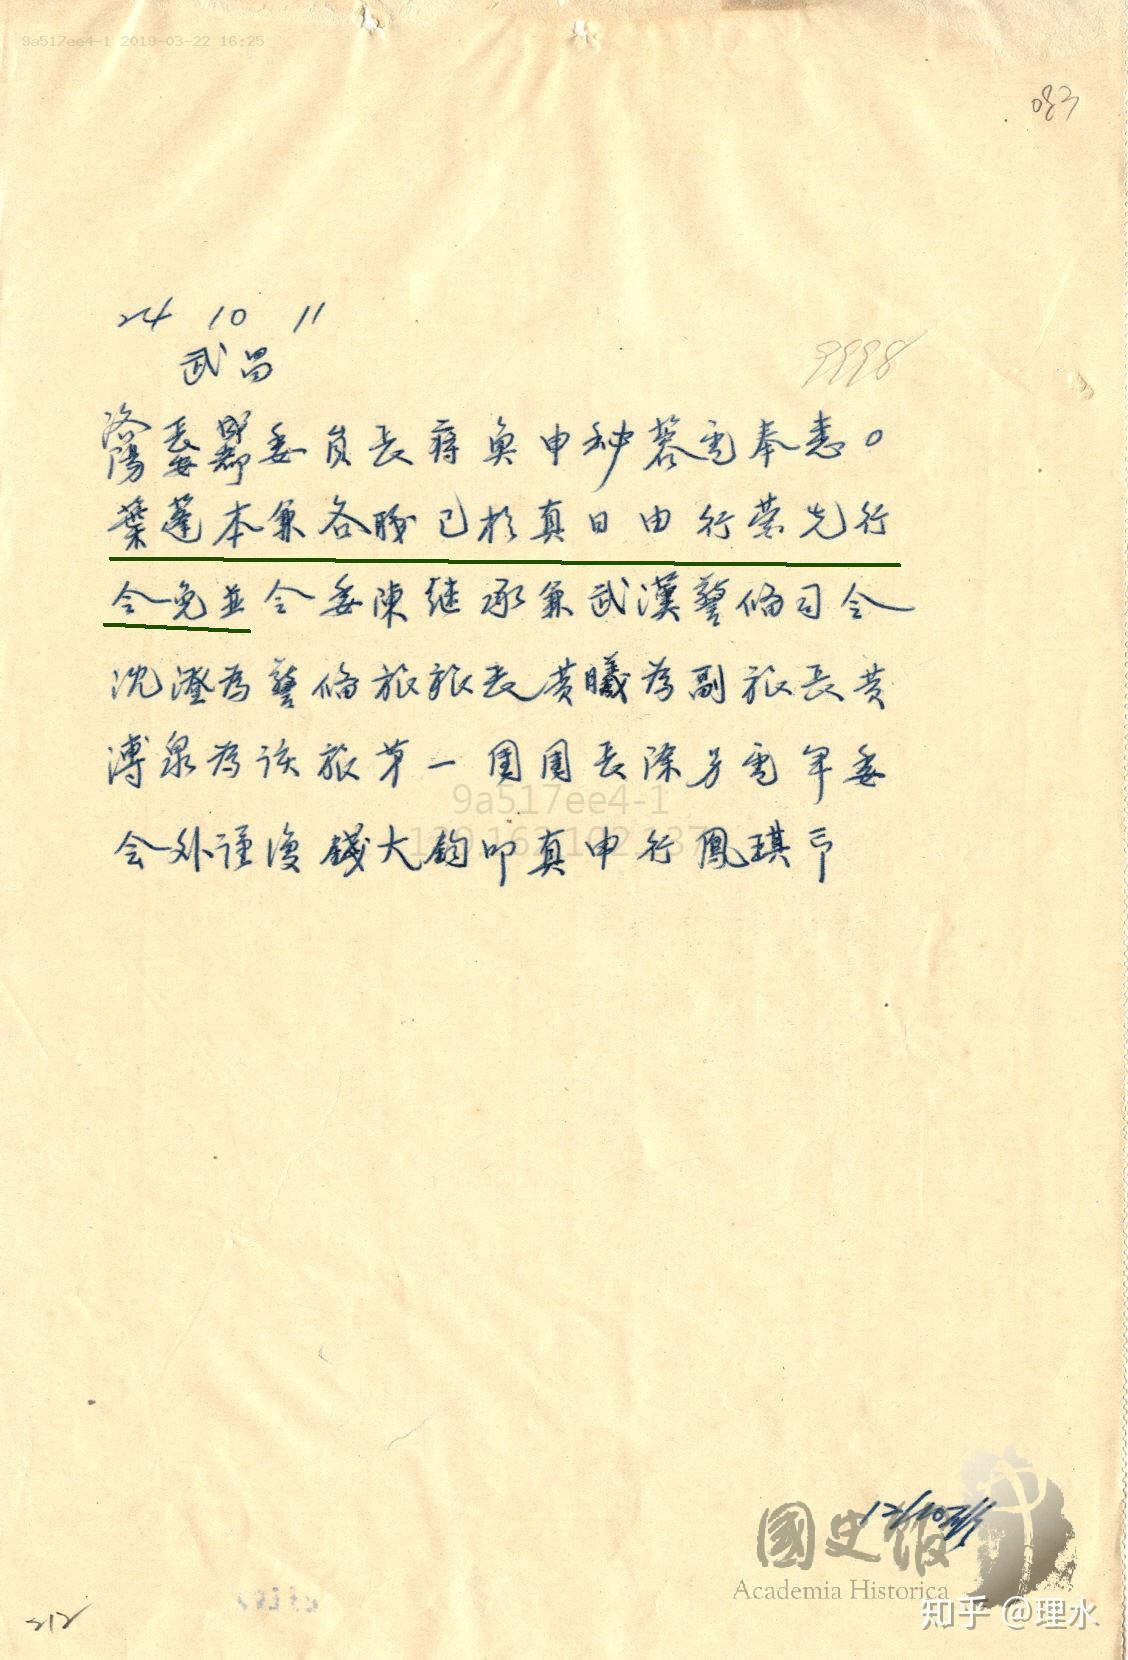 9a517ee4-1 2019-03-22 16:25
083
24 10 11
武昌
9998
洛陽長安成都委員長蔣奐申秘蓉電奉悉。
葉蓬本兼各職已於真日由行營先行
令免並令委陳繼承兼武漢警備司令
沈澄為警備旅旅長黃曦為副旅長黃
溥泉為該旅第一團團長除另電軍委
会外謹復錢大鈞叩真申行鳳琪印
9a517ee4-1
國史館
Academia Historica
知乎 @理水
212